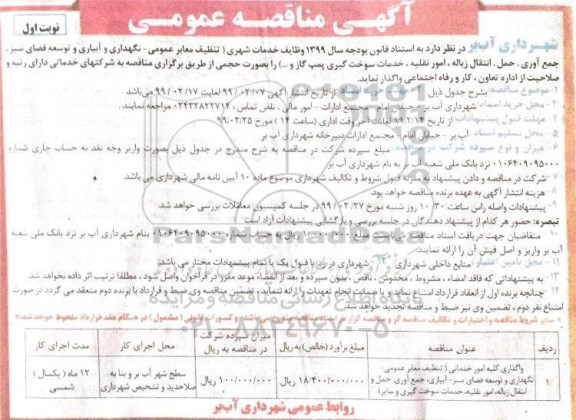 آگهی مناقصه عمومی
نوبت اول
شهرداری آب‌بر در نظر دارد به استناد قانون بودجه سال ۱۳۹۹ وظایف خدمات شهری ( تنظیف معابر عمومی - نگهداری و آبیاری و توسعه فضای سبز -
جمع آوری ، حمل ، انتقال زباله ، امور نقلیه ، خدمات سوخت گیری پمپ گاز و ... ) را بصورت حجمی از طریق برگزاری مناقصه به شرکتهای خدماتی دارای رتبه و
صلاحیت از اداره تعاون ، کار و رفاه اجتماعی واگذار نماید.
۱- موضوع مناقصه بشرح جدول ذیل از تاریخ انتشار آگهی ۹۹/۰۲/۰۷ لغایت ۹۹/۰۲/۱۷ می‌باشد.
۲- محل خرید اسناد شهرداری آب بر - امام - مجتمع ادارات - امور مالی ، تلفن تماس : ۰۲۴۳۲۸۲۲۷۱۴ مراجعه نمایند .
مهلت قبول پیشنهادات از تاریخ ۹۹/۲/۱۴ لغایت آخر وقت اداری (ساعت ۱۴ ) مورخ ۹۹/۰۲/۲۵
محل تسلیم اسناد آب بر - خیابان امام - مجتمع ادارات دبیرخانه شهرداری آب بر
۶- میزان و نوع سپرده شرکت در مناقصه مبلغ سپرده شرکت در مناقصه به شرح مندرج در جدول ذیل بصورت واریز وجه نقد به حساب جاری شماره
۰۱۰۶۴۰۹۰۹۵۰۰۰ نزد بانک ملی شعبه آب بر به نام شهرداری آب بر
شرکت در مناقصه و دادن پیشنهاد به منزله قبول شروط و تکالیف شهرداری موضوع ماده ۱۰ آیین نامه مالی شهرداری می باشد.
هزینه انتشار آگهی به عهده برنده مناقصه خواهد بود.
پیشنهادات واصله راس ساعت ۱۰/۳۰ روز شنبه مورخ ۹۹/۰۲/۲۷ در جلسه کمیسیون معاملات بررسی خواهد شد.
تبصره: حضور هر کدام از پیشنهاد دهندگان در جلسه بررسی و بازگشائی پیشنهادات آزاد است
متقاضیان جهت دریافت اسناد مناقصه بایستی مبلغ ریال به حساب ۰۱۰۶۴۰۹۰۹۵۰۰۰ بنام شهرداری آب بر نزد بانک ملی شعبه
آب بر واریز و اصل فیش آن را ارائه نمایند.
محل تامین اعتبار منابع داخلی شهرداری شهرداری در رد یا قبول یک یا تمام پیشنهادات مختار می باشد
به پیشنهاداتی که فاقد امضاء ، مشروط ، مخدوش ، ناقص ، بدون سپرده و بعد از انقضاء موعد مقرر در فراخوان واصل شود ، مطلقا ترتیب اثر داده نخواهد شد
چنانچه برنده اول از انعقاد قرارداد امتناع نماید یا ضمانت انجام تعهدات را ارائه ننماید ، تضمین مناقصه وی ضبط و قرارداد با برنده دوم منعقد می گردد در صورت
امتناع نفر دوم ، تضمین وی نیز ضبط و مناقصه تجدید خواهد شد.
ParsNamadData
پایگاه اطلاع رسانی مناقصه و مزایده
۰۲۱-۸۸۳۴۹۶۷۰-۵
ردیف | عنوان مناقصه | مبلغ برآورد (خالص) به ریال | میزان سپرده شرکت در مناقصه به ریال | محل اجرای کار | مدت اجرای کار
۱ | واگذاری کلیه امور خدماتی ( تنظیف معابر عمومی- نگهداری و توسعه فضای سبز- آبیاری، جمع آوری، حمل و انتقال زباله، امور نقلیه، خدمات سوخت گیری و سایر) | ۱۸/۴۰۰/۰۰۰/۰۰۰ ریال | ۱/۰۰۰/۰۰۰/۰۰۰ ریال | سطح شهر آب بر و بنا به صلاحدید و تشخیص شهرداری | ۱۲ ماه ( یکسال ) شمسی
روابط عمومی شهرداری آب‌بر